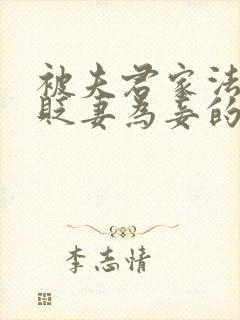 被夫君家法
贬妻为妾的
李志情